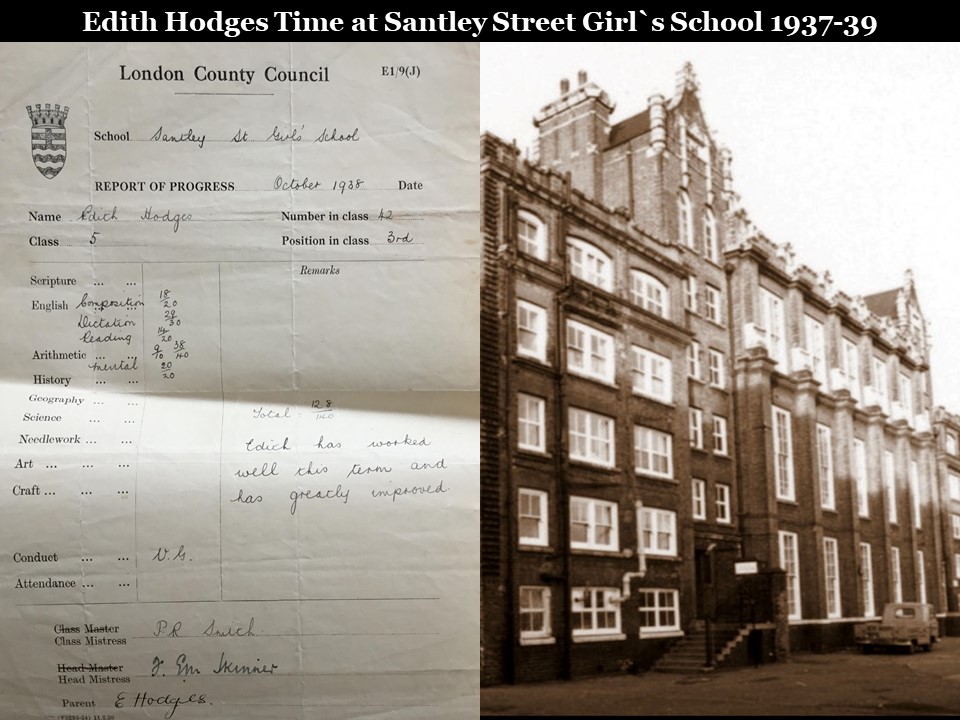 Edith Hodges Time at Santley Street Girl`s School 1937-39
London County Council E1/9(J)
School Santley St Girls' School
REPORT OF PROGRESS October 1938 Date
Name Edith Hodges Number in class 42
Class 5 Position in class 3rd
Remarks
Scripture ... ...
English Composition 18/20
Dictation 29/30
Reading 14/20
Arithmetic ... ... 9/10 38/40
mental 20/20
History ... ...
Geography ... ...
Science ... ... Total: 128/140
Needlework ... ... Edith has worked
Art ... ... ... well this term and
Craft ... ... ... has greatly improved.
Conduct ... ... V.G.
Attendance ... ...
Class Master
Class Mistress P.R. Smith
Head Master
Head Mistress Skinner
Parent E Hodges.